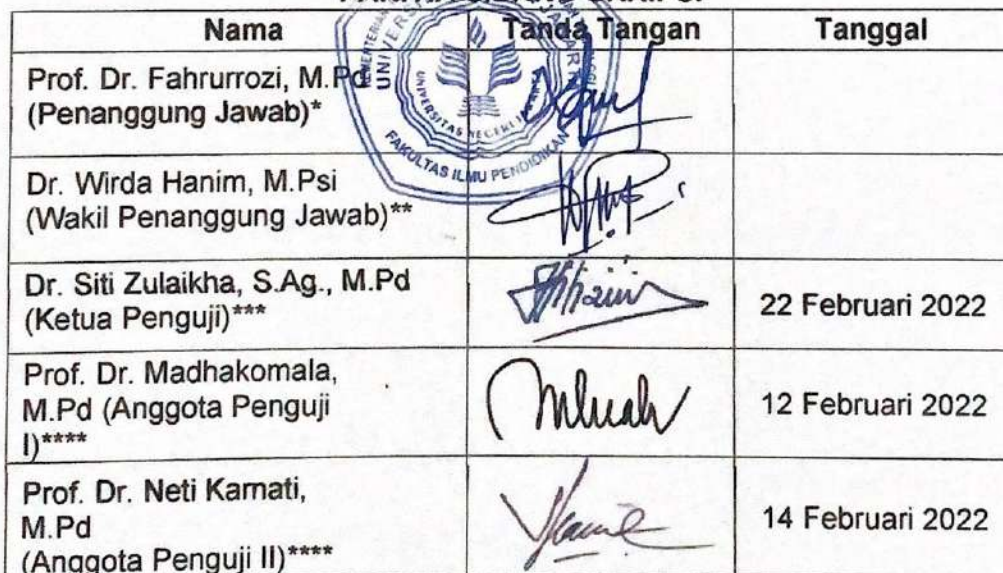 Nama Tanda Tangan Tanggal
Prof. Dr. Fahrurrozi, M.Pd
(Penanggung Jawab)*
Dr. Wirda Hanim, M.Psi
(Wakil Penanggung Jawab)**
Dr. Siti Zulaikha, S.Ag., M.Pd
(Ketua Penguji)***
22 Februari 2022
Prof. Dr. Madhakomala,
M.Pd (Anggota Penguji
I)****
12 Februari 2022
Prof. Dr. Neti Karnati,
M.Pd
(Anggota Penguji II)****
14 Februari 2022
UNIVERSITAS NEGERI
FAKULTAS ILMU PENDIDIKAN